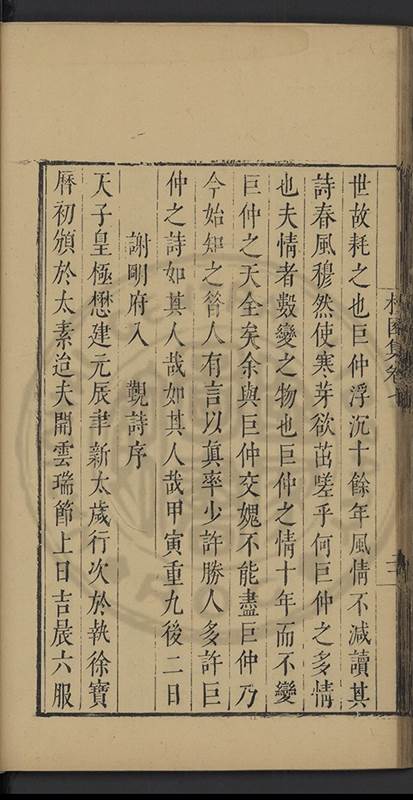 世故耗之也巨仲浮沉十餘年風情不減讀其
詩春風穆然使寒芽欲茁嗟乎何巨仲之多情
也夫情者數變之物也巨仲之情十年而不變
巨仲之天全矣余與巨仲交媿不能盡巨仲乃
今始知之昝人有言以眞率少許勝人多許巨
仲之詩如其人哉如其人哉甲寅重九後二日
謝明府入　覲詩序
天子皇極懋建元辰聿新太歲行次於執徐寶
曆初頒於太素迨夫開雲瑞節上日吉晨六服
集卷